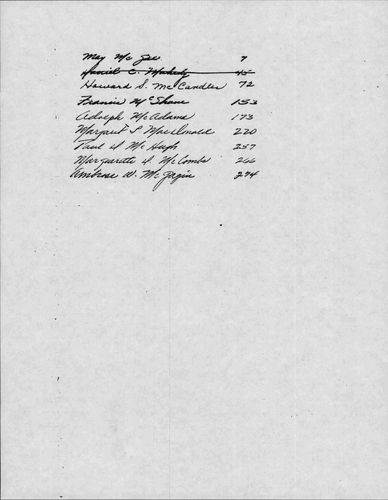 May McGee 7
Daniel C. 45
Howard S. McCandless 72
Francis McShane 153
Adolph McAdams 173
Margaret S. MacDonald 220
Paul J. McHugh 257
Marguerite J. McCombs 266
Ambrose W. McGagin 274